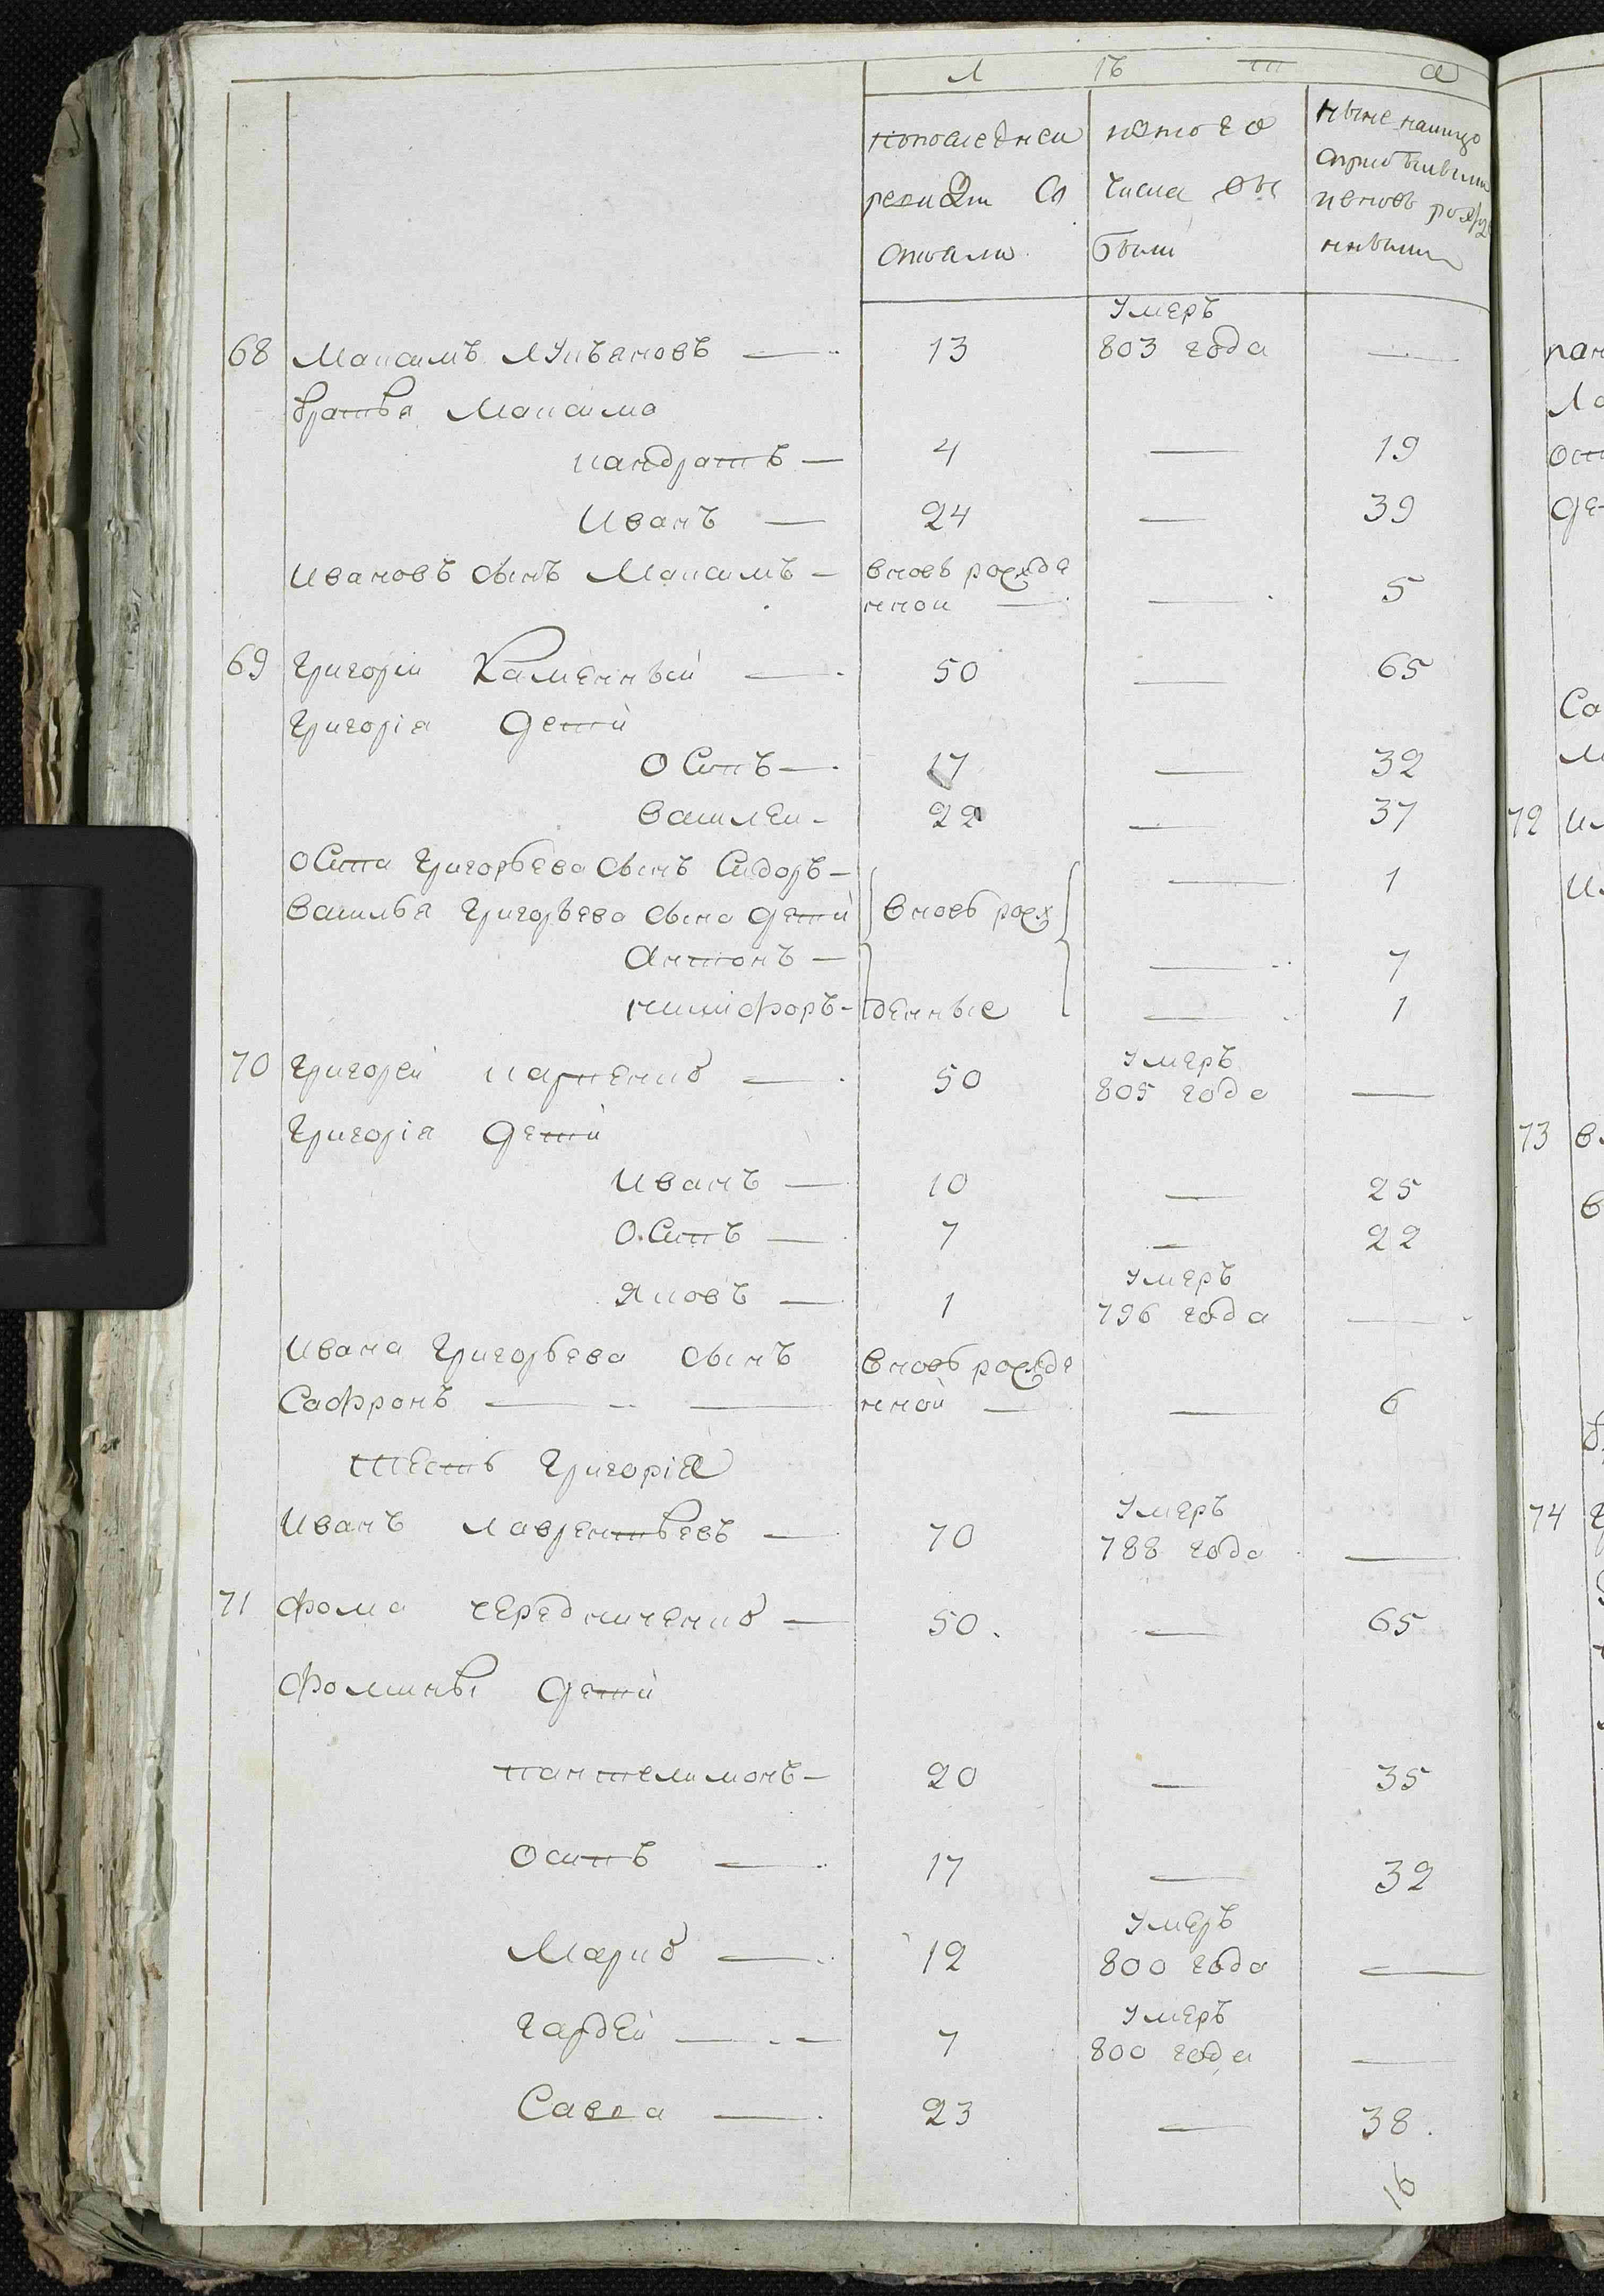 Л ѣ т а
попоследнеи ревизіи Состоали
изтого числа выбыли
ныне налицо сприбылыми ивновь рожденными
68 Максимъ Лукъановъ — 13 Умеръ 803 года —
братья Максима
кандратъ — 4 — 19
Иванъ — 24 — 39
Ивановъ сынъ Максимъ — вновь рожденнои — — 5
69 Григоріи Каменный — 50 — 65
Григорія Дети
ОСипъ — 17 — 32
Василеи — 22 — 37
ОСипа Григорьева сынъ Сидоръ — вновь рож — 1
Василья Григорьева сына дети
Антонъ — — 7
никифоръ — денные — 1
70 Григореи карпенко — 50 Умеръ 805 года —
Григорія Дети
Иванъ — 10 — 25
ОСипъ — 7 — 22
Яковъ — 1 Умеръ 796 года —
Ивана Григорьева сынъ вновь рожде
Сафронъ — нной — — 6
тесть Григорія
Иванъ Лаврентьевъ — 70 Умеръ 788 года —
71 Фома чередниченко — 50. — 65
Фомины Дети
пантелимонъ — 20 — 35
Осипъ — 17 — 32
Марко — 12 Умеръ 800 года —
Гардей — 7 Умеръ 800 года —
Савва — 23 — 38.
16
72
73
74